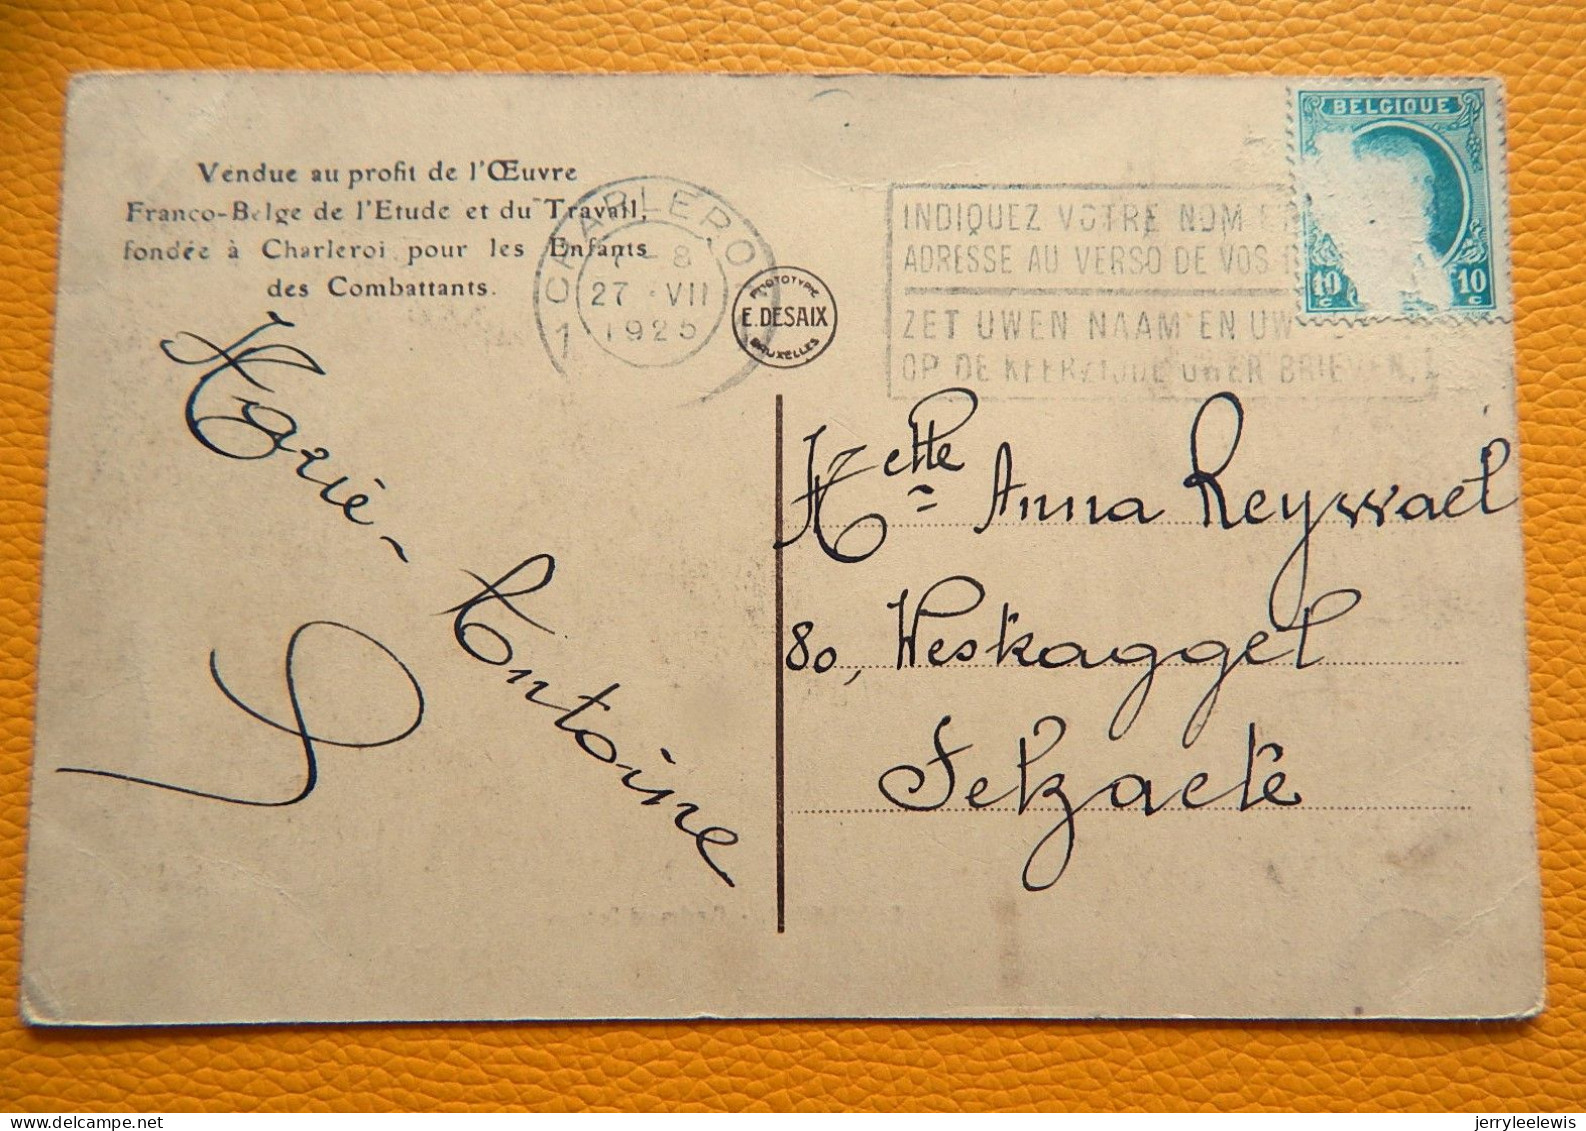 Vendue au profit de l'Œuvre
Franco-Belge de l'Etude et du Travail,
fondée à Charleroi pour les Enfants
des Combattants.
1 CHARLEROI
7-8
27 VII
1925
PHOTOTYPIE
E. DESAIX
BRUXELLES
INDIQUEZ VOTRE NOM E
ADRESSE AU VERSO DE VOS
ZET UWEN NAAM EN UW
OP DE KEERZIJDE UWER BRIEVEN.
BELGIQUE
10 c 10 c
Marie-Antoinine
Melle Anna Reyssaet
80, Weskaggel
Selzaete
jerryleelewis